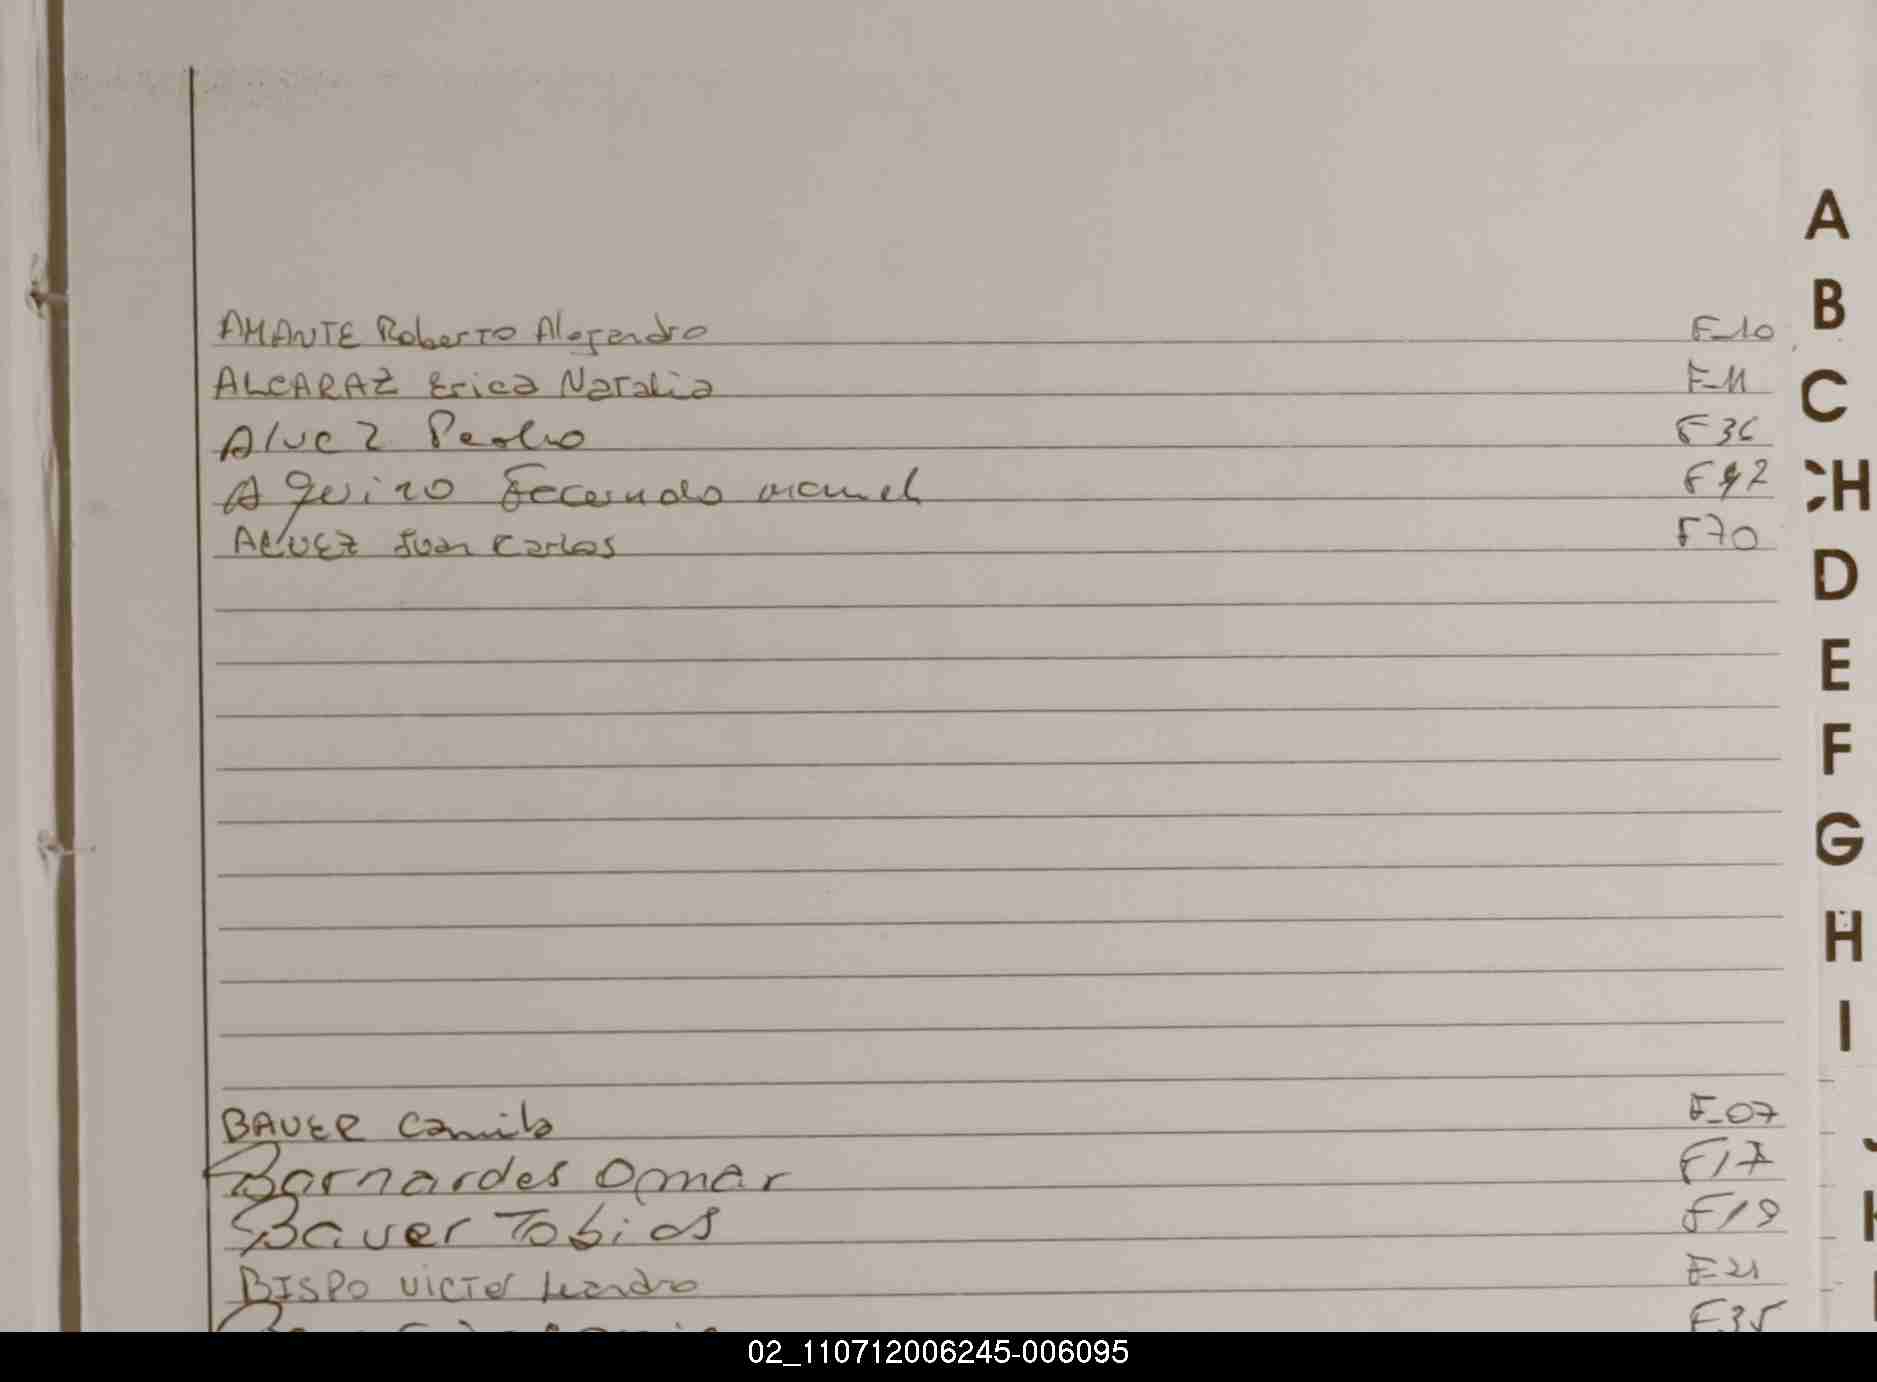 AMANTE Roberto Alejandro F-10
ALCARAZ Erica Natalia F-11
Alvez Pedro F36
Aguirro Facundo manuel F42
ALVEZ Juan Carlos F70
BAUER Camila F-07
Barnardes Omar F17
Bauer Tobias F19
BISPO Victor Leandro F-21
F35
A
B
C
CH
D
E
F
G
H
I
02_110712006245-006095